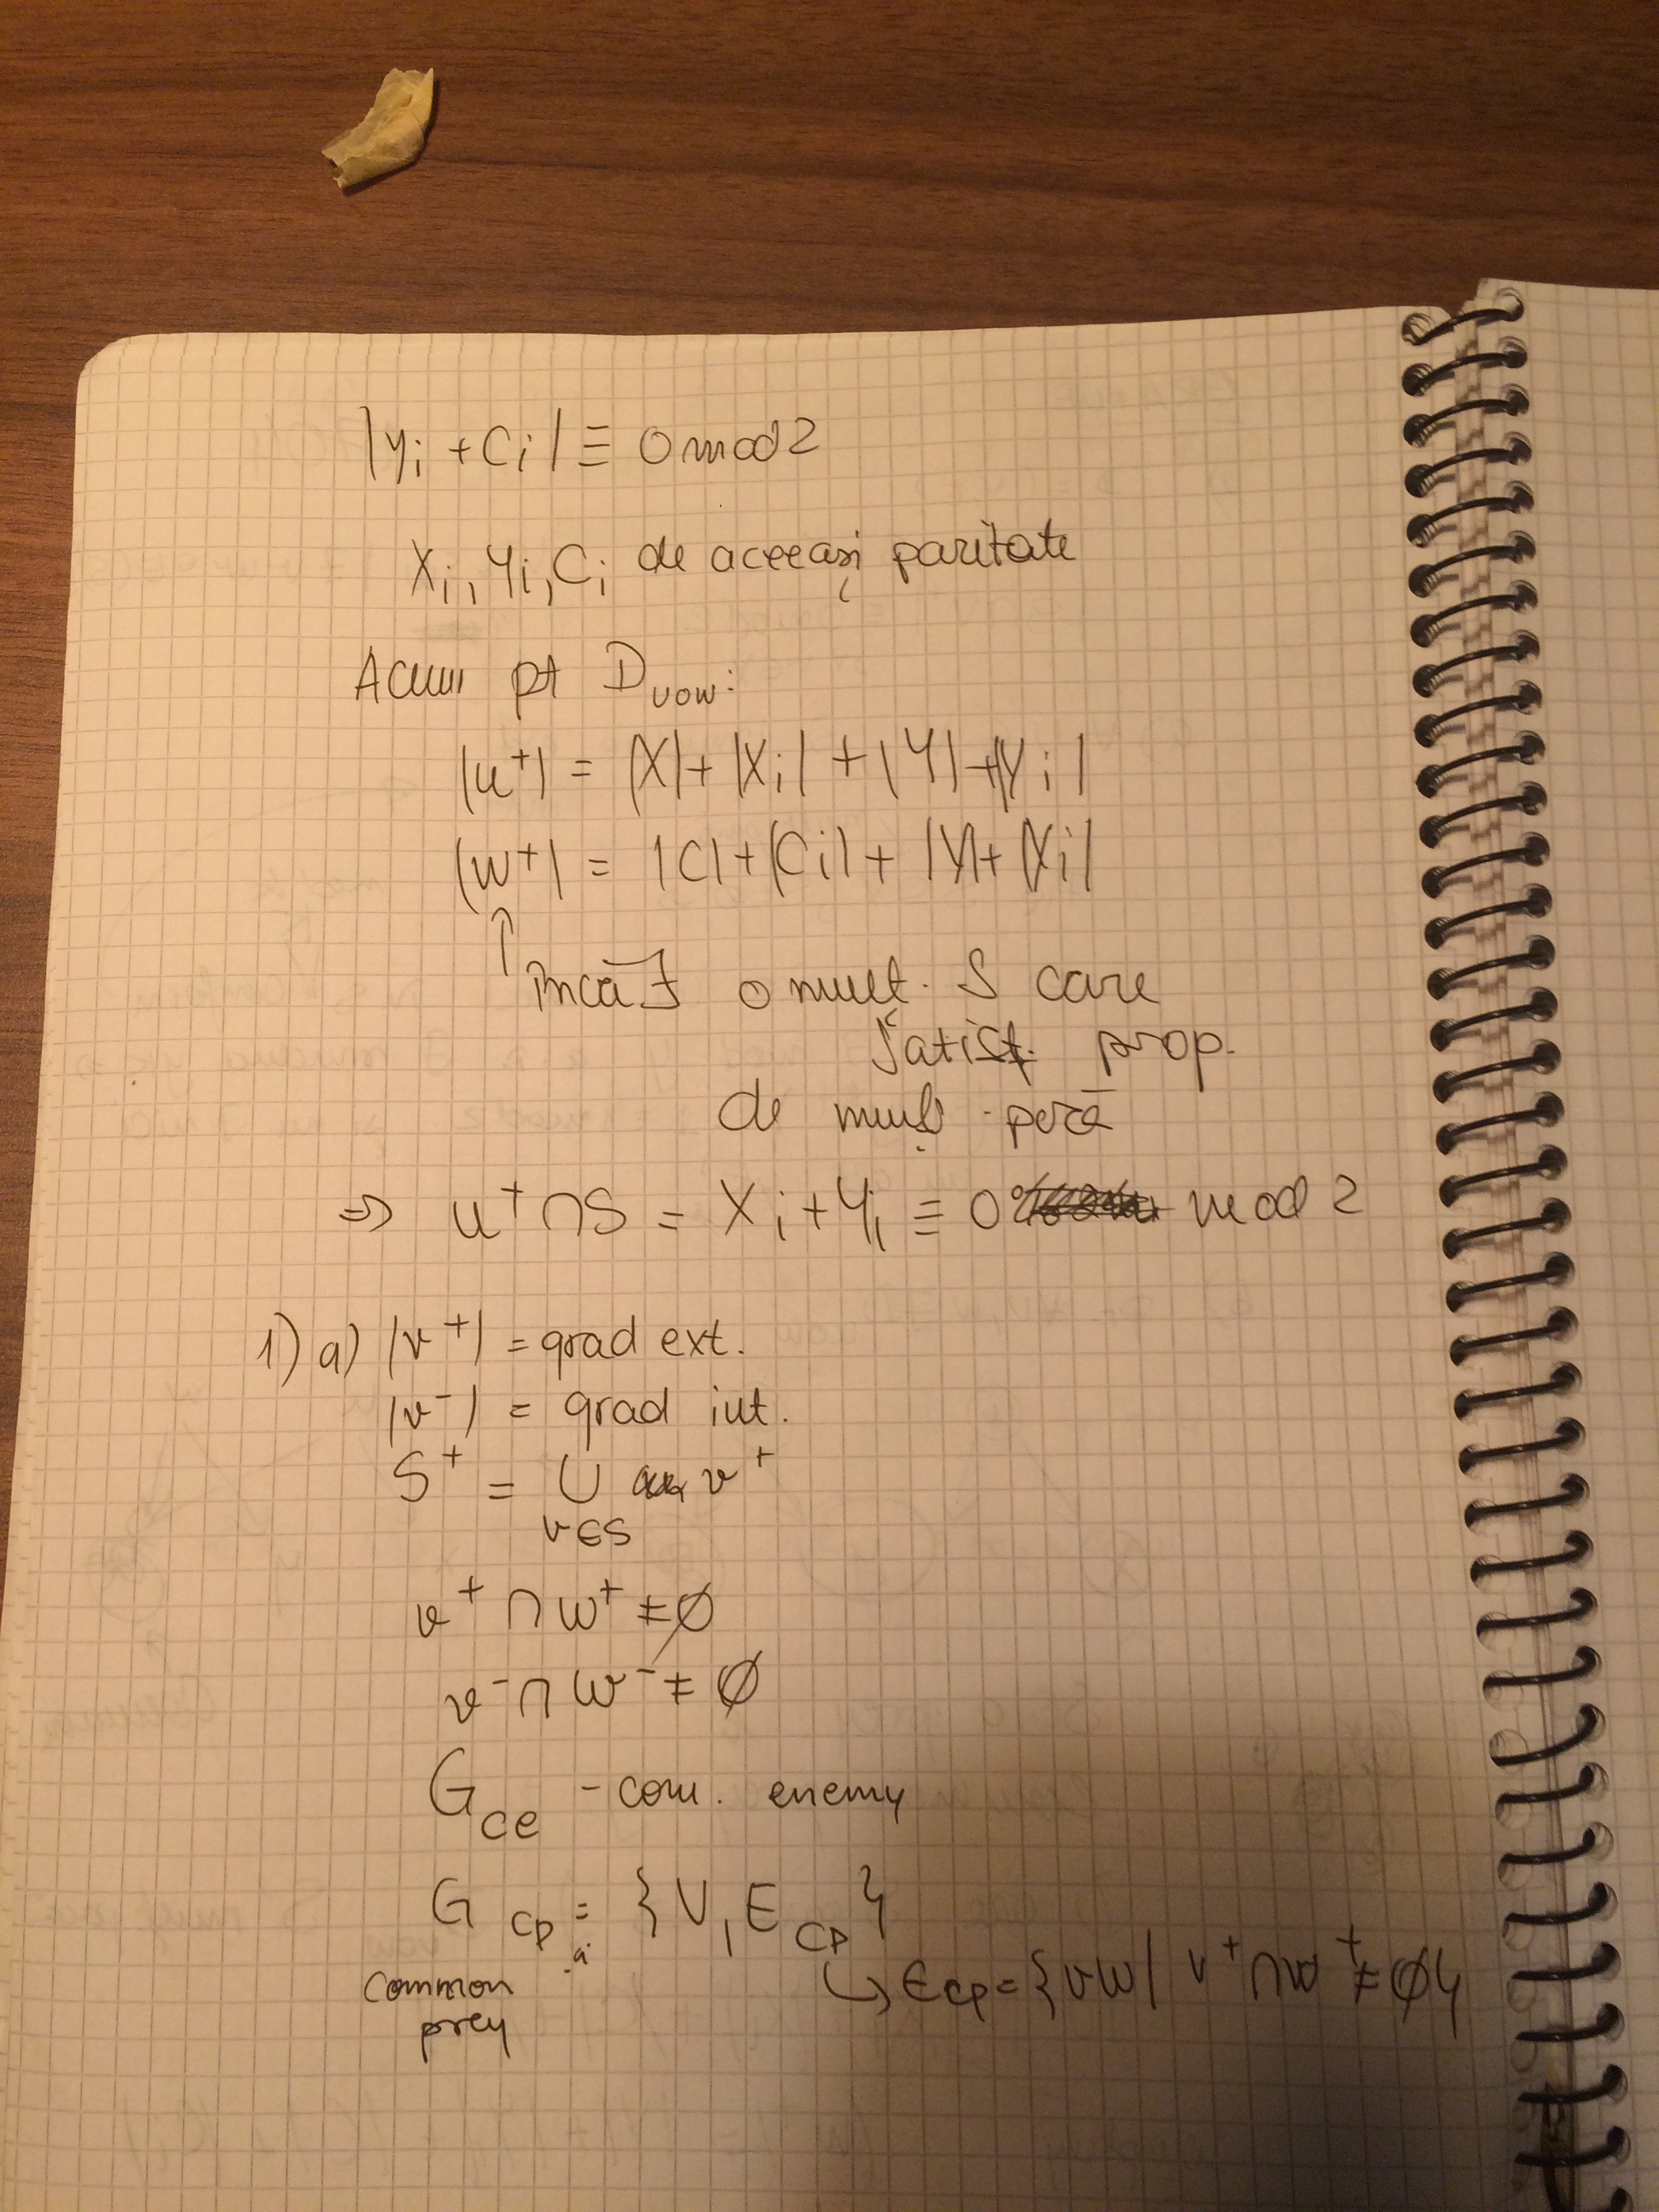 |Yi + Ci| ≡ 0 mod 2
Xi, Yi, Ci de aceeași paritate
Acum pt Dvow:
|u⁺| = |X| + |Xi| + |Y| + |Yi|
|w⁺| = |C| + |Ci| + |Y| + |Xi|
↑ încă ∃ o mult. S care
satisf. prop.
de mulț. pară
⇒ u⁺ ∩ S = Xi + Yi ≡ 0 mod 2
1) a) |v⁺| = grad ext.
|v⁻| = grad int.
S⁺ = ∪ v⁺
v∈S
v⁺ ∩ w⁺ ≠ Ø
v⁻ ∩ w⁻ ≠ Ø
Gce - com. enemy
Gcp = {V, Ecp}
↳ Ecp = {vw | v⁺ ∩ w⁺ ≠ Ø}
common
prey